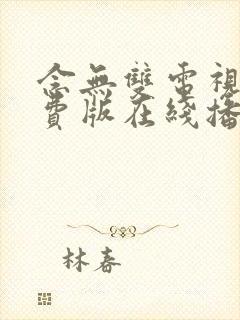 念無雙電視
費版在綫播
林春